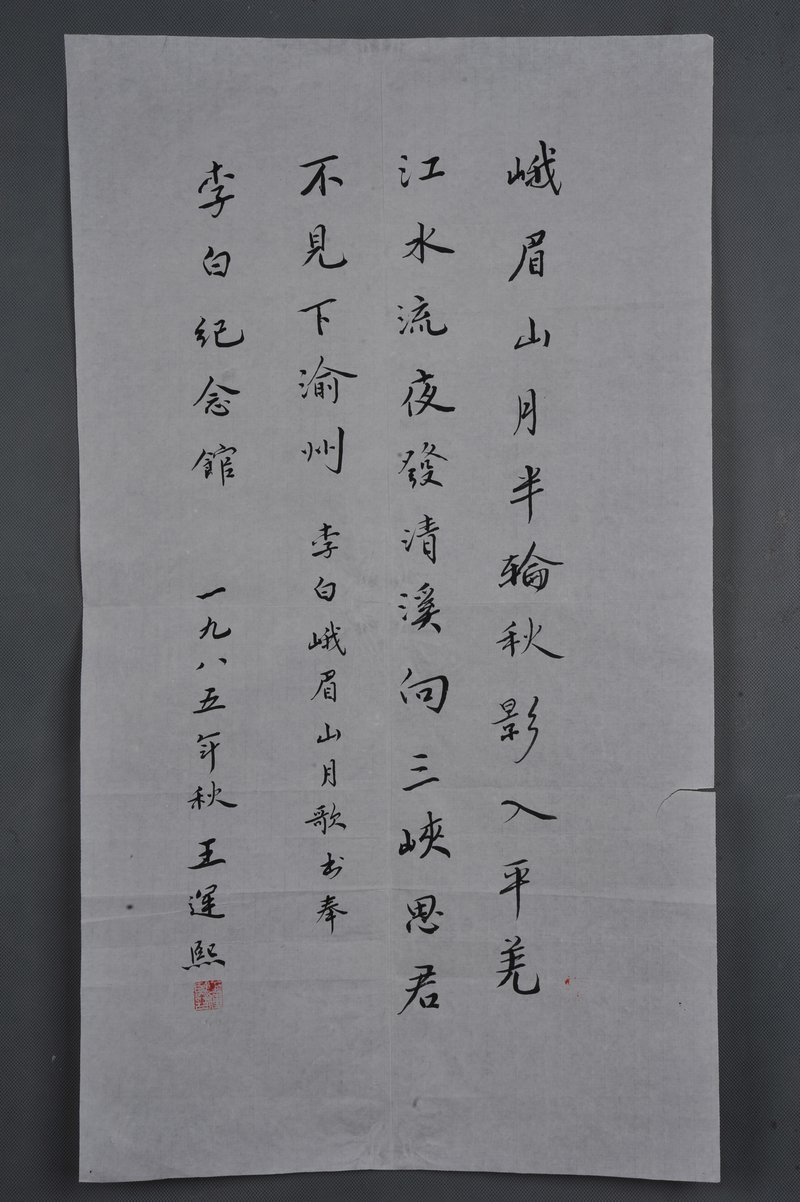 峨眉山月半輪秋影入平羌
江水流夜發清溪向三峽思君
不見下渝州 李白峨眉山月歌书奉
李白纪念館 一九八五年秋 王運熙